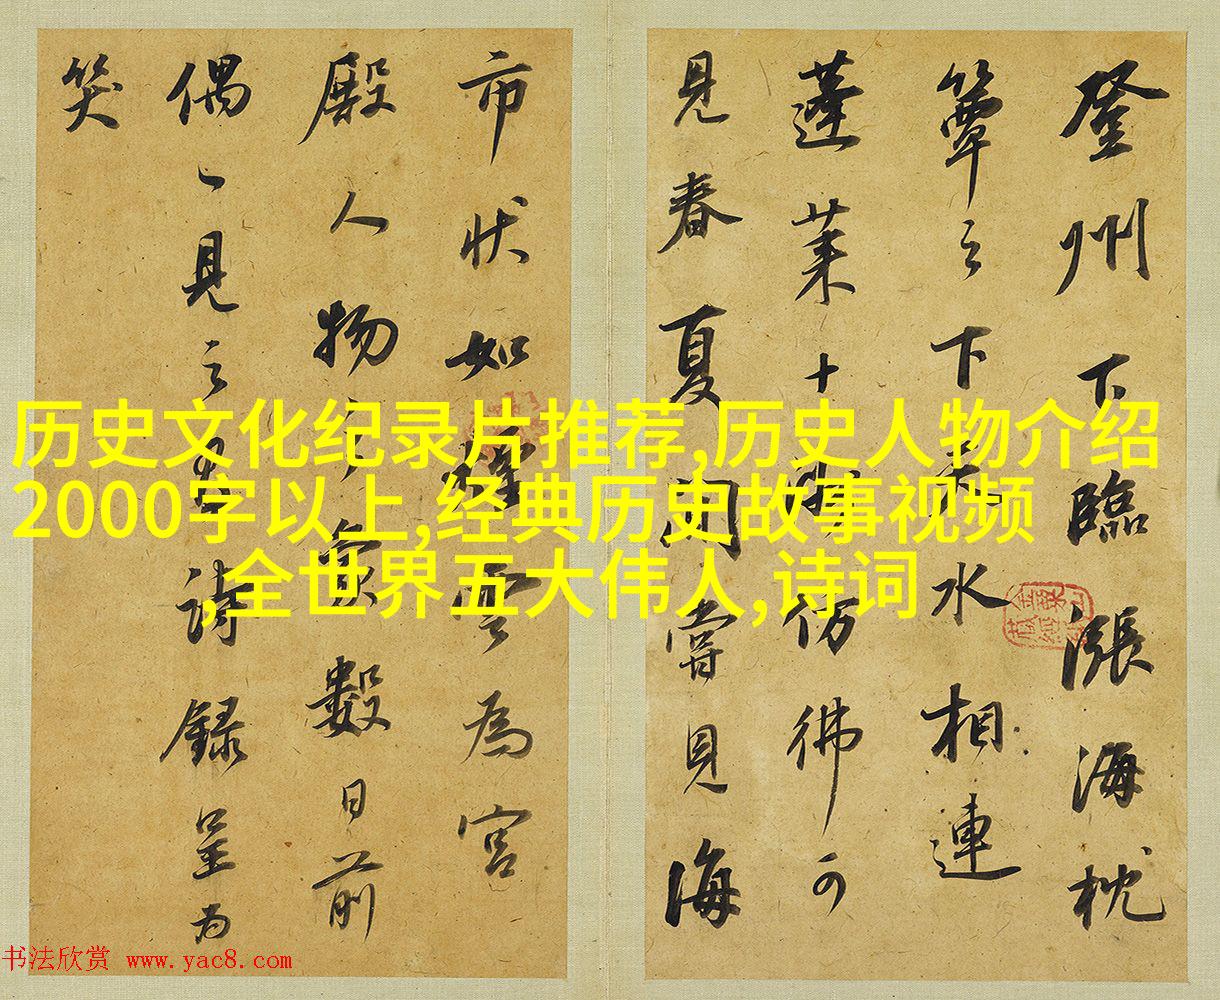 登州下臨漲海枕
簞之下天水相連
蓬莱十數仿彿可
見春夏間嘗見海
市状如煙雲為宮
殿人物之象數日前
偶一見之有詩録呈为
笑
历史文化纪录片推荐,历史人物介绍
2000字以上,经典历史故事视频
,全世界五大伟人,诗词
书法欣赏 www.yac8.com